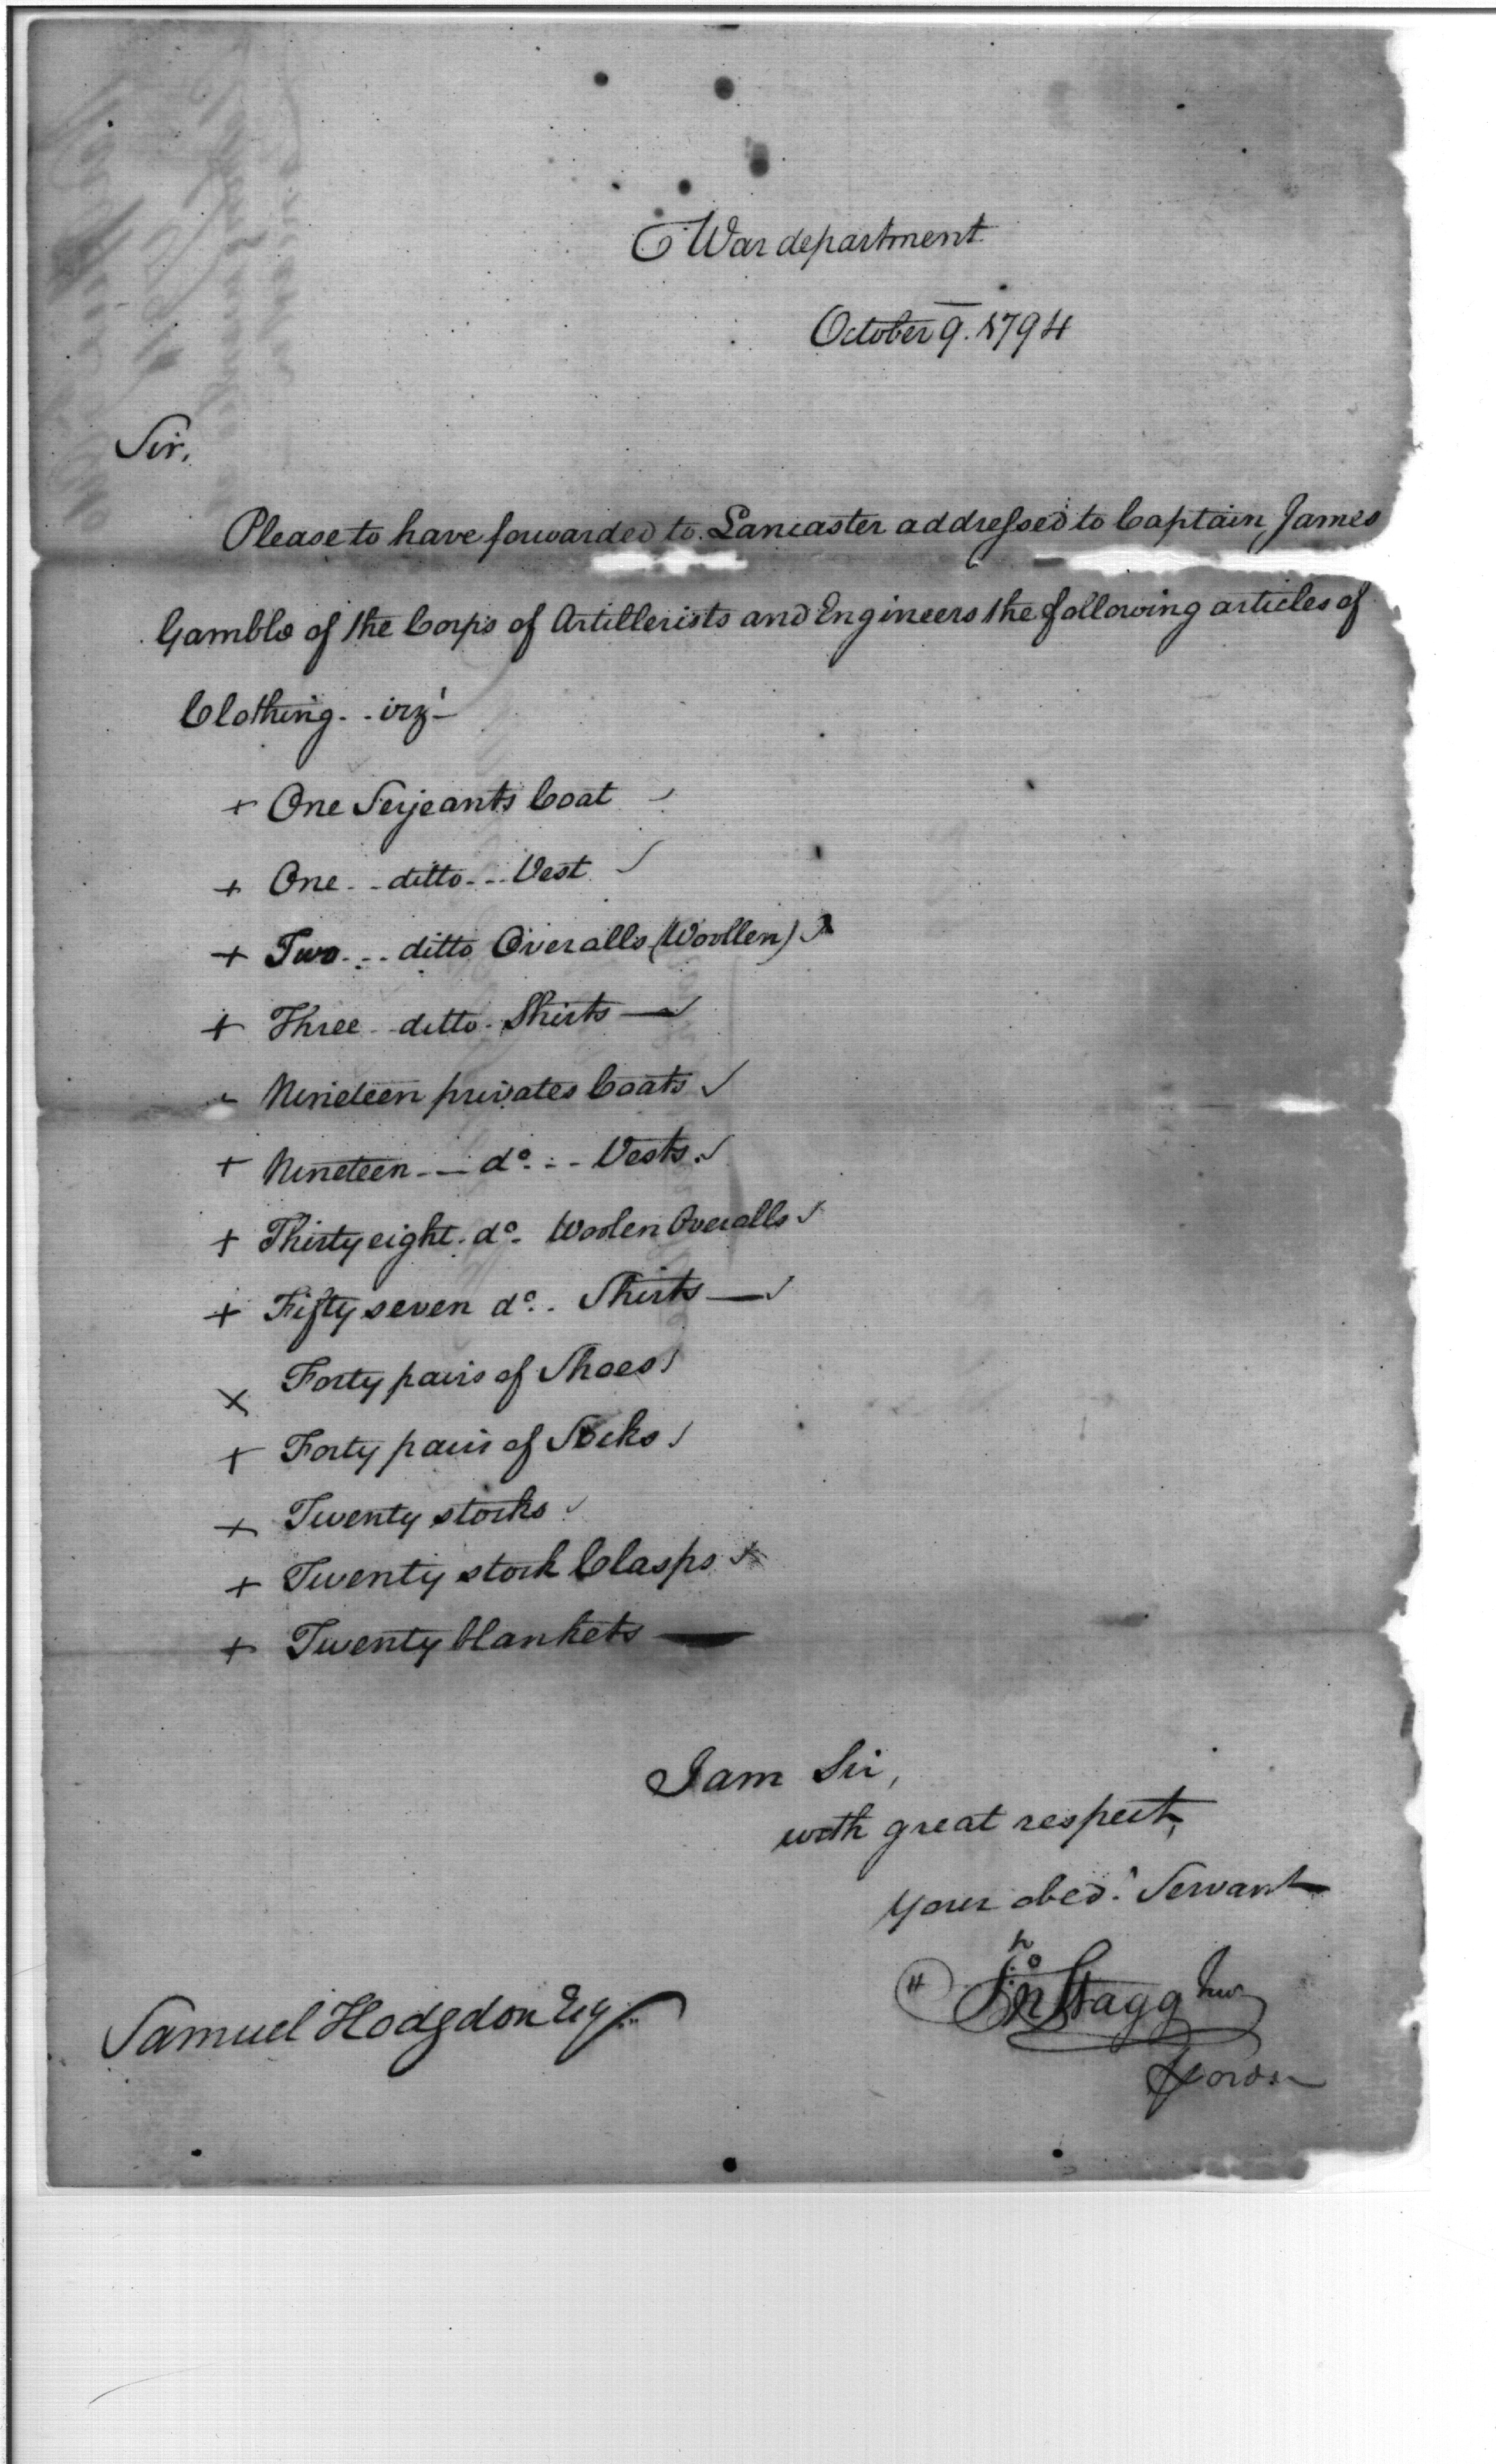 War department
October 9. 1794
Sir,
Please to have forwarded to Lancaster addressed to Captain James
Gamble of the Corps of Artillerists and Engineers the following articles of
Clothing - - viz!
+ One Serjeants Coat ✓
+ One - - ditto - - - Vest ✓
+ Two - - - ditto Overalls (Woollen) ✓
+ Three - - ditto - Shirts — ✓
- Nineteen privates Coats ✓
+ Nineteen - — do - - - Vests. ✓
+ Thirty eight - do - Woolen Overalls ✓
+ Fifty seven do - . Shirts — ✓
x Forty pairs of Shoes ✓
+ Forty pairs of Socks ✓
+ Twenty stocks ✓
+ Twenty stock Clasps ✓
+ Twenty blankets —
I am Sir,
with great respect,
your obed.t Servant
Jno Stagg Junr
Samuel Hodgdon Esq